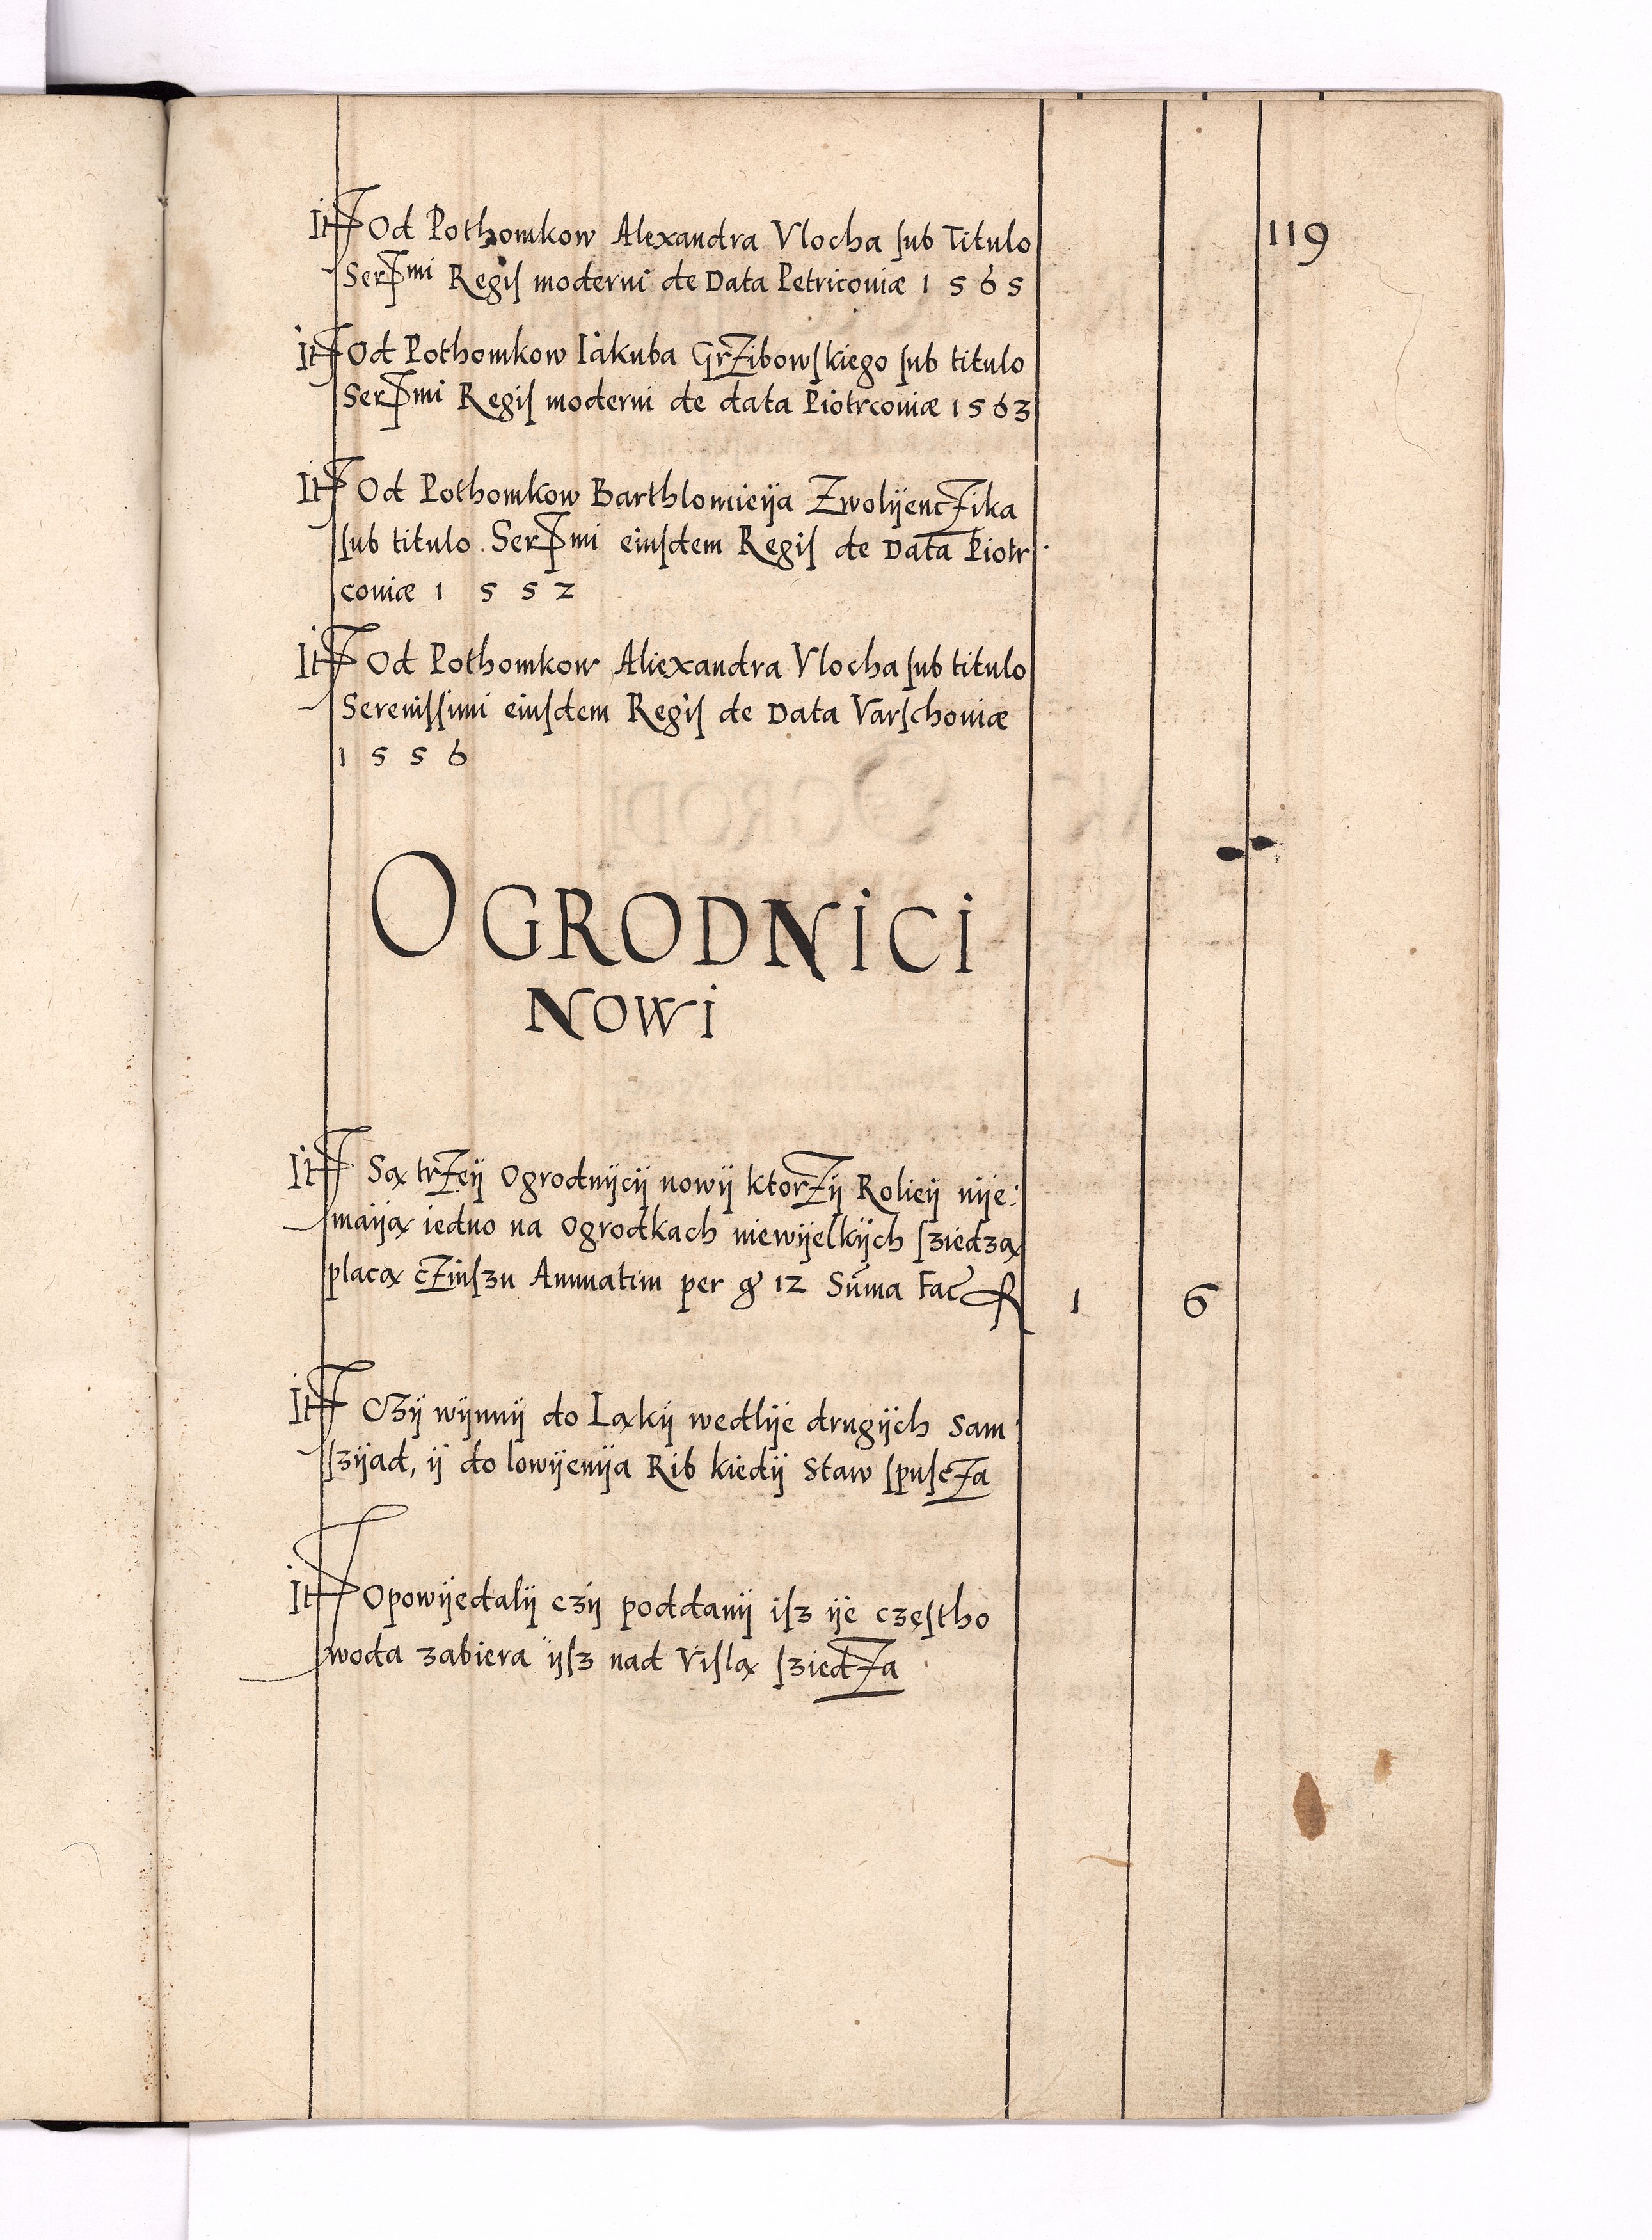 119
It Od Pothomkow Alexandra Vlocha sub Titulo
Sermi Regis moderni de Data Petricouiæ 1565
It Od Pothomkow Iakuba Grzibowskiego sub titulo
Sermi Regis moderni de data Piotrcouiæ 1563
It Od Pothomkow Barthlomieija Zwolijenczika
sub titulo Sermi eiusdem Regis de Data Piotr
couiæ 1552
It Od Pothomkow Aliexandra Vlocha sub titulo
Serenissimi eiusdem Regis de Data Varschouiæ
1556
OGRODNICI
NOWI
It Są trzeij Ogrodnijcij nowij ktorzij Roliej nije
maiją iedno na Ogrodkach niewijelkijch sziedzą
placą czinszu Annuatim per gr 12 Suma Fac R 1 6
It Czij wijnnij do Ląkij wedlije drugijch Sam
szijad, ij do lowijenija Rib kiedij Staw spuscza
It Opowijedalij czij poddanij isz ije częstho
woda zabiera ijsz nad Vislą sziedza